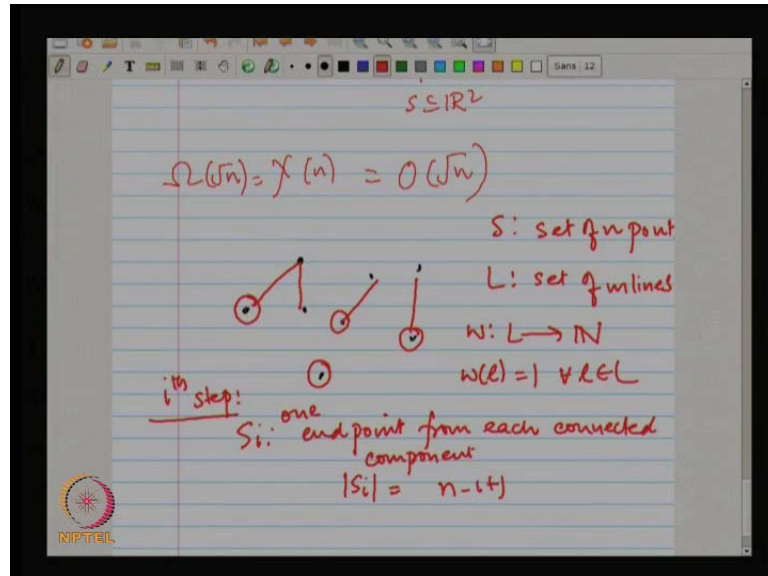 Sans 12
S ⊆ ℝ²
Ω(√n) = χ(n) = O(√n)
S: set of n pont
L: set of m lines
W: L → ℕ
w(l) = 1 ∀ l ∈ L
ith step:
Si: one endpoint from each connected
component
|Si| = n-i+1
NPTEL